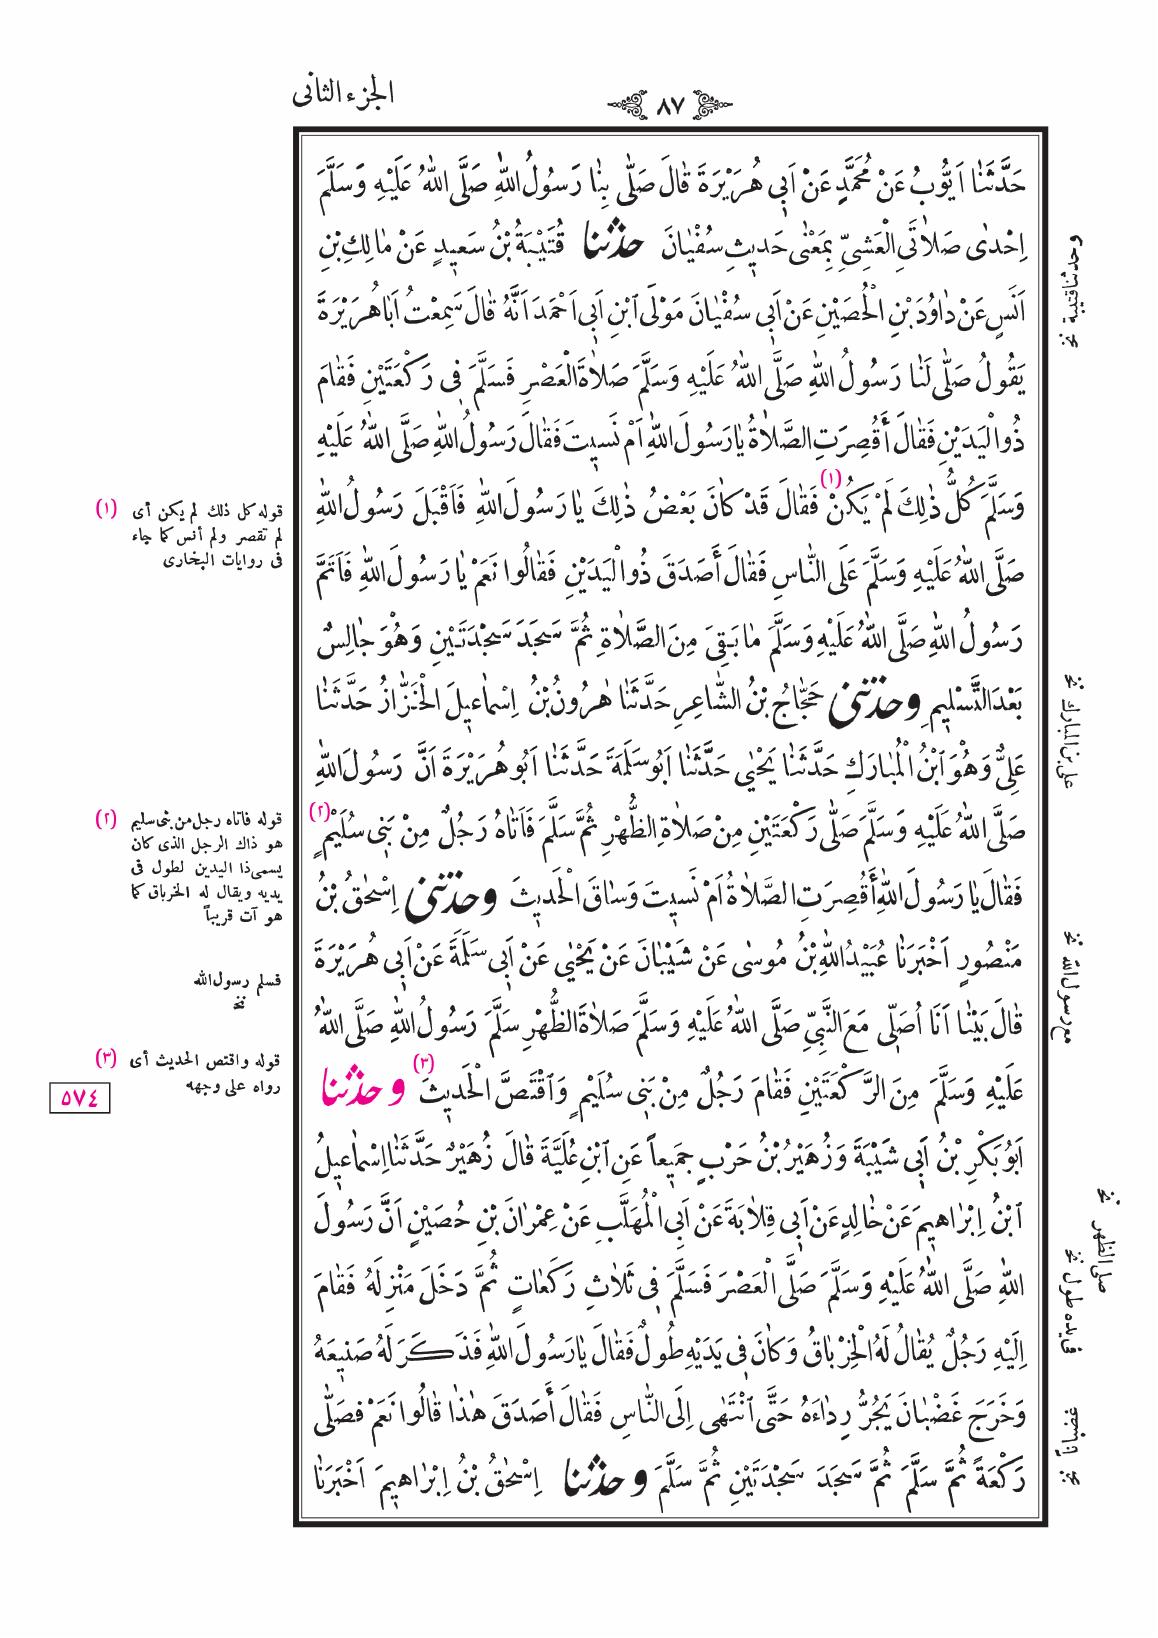 الجزء الثانى
٨٧
حَدَّثَنَا اَيُّوبُ عَنْ مُحَمَّدٍ عَنْ اَبِي هُرَيْرَةَ قَالَ صَلّٰى بِنَا رَسُولُ اللهِ صَلَّى اللهُ عَلَيْهِ وَسَلَّمَ
اِحْدٰى صَلَاتَىِ الْعَشِىِّ بِمَعْنٰى حَديثِ سُفْيَانَ حدثنا قُتَيْبَةُ بْنُ سَعِيدٍ عَنْ مَالِكِ بْنِ
اَنَسٍ عَنْ دَاوُدَ بْنِ الْحُصَيْنِ عَنْ اَبِي سُفْيَانَ مَوْلَى ابْنِ اَبِي اَحْمَدَ اَنَّهُ قَالَ سَمِعْتُ اَبَا هُرَيْرَةَ
يَقُولُ صَلّٰى لَنَا رَسُولُ اللهِ صَلَّى اللهُ عَلَيْهِ وَسَلَّمَ صَلَاةَ الْعَصْرِ فَسَلَّمَ فِى رَكْعَتَيْنِ فَقَامَ
ذُو الْيَدَيْنِ فَقَالَ أَقُصِرَتِ الصَّلَاةُ يَا رَسُولَ اللهِ اَمْ نَسِيتَ فَقَالَ رَسُولُ اللهِ صَلَّى اللهُ عَلَيْهِ
وَسَلَّمَ كُلُّ ذٰلِكَ لَمْ يَكُنْ (١) فَقَالَ قَدْ كَانَ بَعْضُ ذٰلِكَ يَا رَسُولَ اللهِ فَاَقْبَلَ رَسُولُ اللهِ
صَلَّى اللهُ عَلَيْهِ وَسَلَّمَ عَلَى النَّاسِ فَقَالَ أَصَدَقَ ذُو الْيَدَيْنِ فَقَالُوا نَعَمْ يَا رَسُولَ اللهِ فَاَتَمَّ
رَسُولُ اللهِ صَلَّى اللهُ عَلَيْهِ وَسَلَّمَ مَا بَقِىَ مِنَ الصَّلَاةِ ثُمَّ سَجَدَ سَجْدَتَيْنِ وَهُوَ جَالِسٌ
بَعْدَ التَّسْلِيمِ وحدثنى حَجَّاجُ بْنُ الشَّاعِرِ حَدَّثَنَا هٰرُونُ بْنُ اِسْمَاعِيلَ الْخَزَّازُ حَدَّثَنَا
عَلِىٌّ وَهُوَ ابْنُ الْمُبَارَكِ حَدَّثَنَا يَحْيٰى حَدَّثَنَا اَبُو سَلَمَةَ حَدَّثَنَا اَبُو هُرَيْرَةَ اَنَّ رَسُولَ اللهِ
صَلَّى اللهُ عَلَيْهِ وَسَلَّمَ صَلّٰى رَكْعَتَيْنِ مِنْ صَلَاةِ الظُّهْرِ ثُمَّ سَلَّمَ فَاَتَاهُ رَجُلٌ مِنْ بَنِى سُلَيْمٍ (٢)
فَقَالَ يَا رَسُولَ اللهِ أَقُصِرَتِ الصَّلَاةُ اَمْ نَسِيتَ وَسَاقَ الْحَدِيثَ وحدثنى اِسْحٰقُ بْنُ
مَنْصُورٍ اَخْبَرَنَا عُبَيْدُ اللهِ بْنُ مُوسٰى عَنْ شَيْبَانَ عَنْ يَحْيٰى عَنْ اَبِي سَلَمَةَ عَنْ اَبِي هُرَيْرَةَ
قَالَ بَيْنَا اَنَا اُصَلِّى مَعَ النَّبِيِّ صَلَّى اللهُ عَلَيْهِ وَسَلَّمَ صَلَاةَ الظُّهْرِ سَلَّمَ رَسُولُ اللهِ صَلَّى اللهُ
عَلَيْهِ وَسَلَّمَ مِنَ الرَّكْعَتَيْنِ فَقَامَ رَجُلٌ مِنْ بَنِى سُلَيْمٍ وَاقْتَصَّ الْحَدِيثَ (٣) وحدثنا
اَبُو بَكْرِ بْنُ اَبِي شَيْبَةَ وَزُهَيْرُ بْنُ حَرْبٍ جَمِيعاً عَنِ ابْنِ عُلَيَّةَ قَالَ زُهَيْرٌ حَدَّثَنَا اِسْمَاعِيلُ
ابْنُ اِبْرَاهِيمَ عَنْ خَالِدٍ عَنْ اَبِي قِلَابَةَ عَنْ اَبِي الْمُهَلَّبِ عَنْ عِمْرَانَ بْنِ حُصَيْنٍ اَنَّ رَسُولَ
اللهِ صَلَّى اللهُ عَلَيْهِ وَسَلَّمَ صَلَّى الْعَصْرَ فَسَلَّمَ فِى ثَلَاثِ رَكَعَاتٍ ثُمَّ دَخَلَ مَنْزِلَهُ فَقَامَ
اِلَيْهِ رَجُلٌ يُقَالُ لَهُ الْخِرْبَاقُ وَكَانَ فِى يَدَيْهِ طُولٌ فَقَالَ يَا رَسُولَ اللهِ فَذَكَرَ لَهُ صَنِيعَهُ
وَخَرَجَ غَضْبَانَ يَجُرُّ رِدَاءَهُ حَتَّى انْتَهٰى اِلَى النَّاسِ فَقَالَ أَصَدَقَ هٰذَا قَالُوا نَعَمْ فَصَلّٰى
رَكْعَةً ثُمَّ سَلَّمَ ثُمَّ سَجَدَ سَجْدَتَيْنِ ثُمَّ سَلَّمَ وحدثنا اِسْحٰقُ بْنُ اِبْرَاهِيمَ اَخْبَرَنَا
وحدثنا قتيبة نخ
على بن المبارك نخ
مع رسول الله نخ
صلى الظهر نخ
فى يده طول نخ
غضباناً نخ
(١) قوله كل ذلك لم يكن أى
لم تقصر ولم أنس كما جاء
فى روايات البخارى
(٢) قوله فاتاه رجل من بنى سليم
هو ذاك الرجل الذى كان
يسمى ذا اليدين لطول فى
يديه ويقال له الخرباق كما
هو آت قريباً
فسلم رسول الله
نخ
(٣) قوله واقتص الحديث أى
رواه على وجهه
٥٧٤